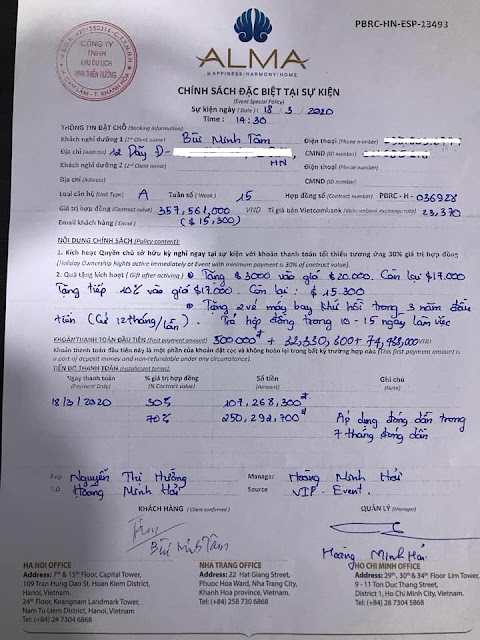 PBRC-HN-ESP-13493
CÔNG TY
TNHH
KHU DU LỊCH
VỊNH THIÊN ĐƯỜNG
ALMA
HAPPINESS|HARMONY|HOME
CHÍNH SÁCH ĐẶC BIỆT TẠI SỰ KIỆN
(Event Special Policy)
Sự kiện ngày (Date): 18/3/2020
Time: 14:30
THÔNG TIN ĐẶT CHỖ (Booking information)
Khách nghỉ dưỡng 1 (1st Client name) Bùi Minh Tâm Điện thoại (Phone number)
Địa chỉ (Address) 12 Dãy Đ- HN CMND (ID number)
Khách nghỉ dưỡng 2 (2nd Client name) Điện thoại (Phone number)
Địa chỉ (Address) CMND (ID number)
Loại căn hộ (Unit Type) A Tuần số (Week) 15 Hợp đồng số (Contract number) PBRC - H - 036928
Giá trị hợp đồng (Contract value) 357,561,000 VND Tỉ giá bán Vietcombank (Vietcombank exchange rate) 23,370
Email khách hàng (Email) ($ 15,300)
NỘI DUNG CHÍNH SÁCH (Policy content):
1. Kích hoạt Quyền chủ sở hữu kỳ nghỉ ngay tại sự kiện với khoản thanh toán tối thiểu tương ứng 30% giá trị hợp đồng
(Holiday Ownership Rights active immediately at Event with minimum payment is 30% of contract value).
2. Quà tặng kích hoạt (Gift after activing) • Tặng $3000 vào giá $20.000. Còn lại $17.000
Tặng tiếp 10% vào giá $17.000. Còn lại: $ 15.300
• Tặng 2 vé máy bay khứ hồi trong 3 năm đầu
tiên (Cứ 12 tháng/lần). Trả hợp đồng trong 10-15 ngày làm việc
KHOẢN THANH TOÁN ĐẦU TIÊN (First payment amount) + VND
Khoản thanh toán đầu tiên này là một phần của khoản đặt cọc và không hoàn lại trong bất kỳ trường hợp nào (This first payment amount is
a part of deposit money and non-refundable under any circumstance).
TIẾN ĐỘ THANH TOÁN (Installment terms)
Ngày thanh toán % giá trị hợp đồng Số tiền Ghi chú
(Payment Date) (% Contract value) (Amount) (Note)
18/3/2020 30% 107,268,300đ
70% 250,292,700đ Áp dụng đóng dần trong
7 tháng đóng dần
Rep Nguyễn Thị Hường Manager Hoàng Minh Hải
T.O Hoàng Minh Hải Source VIP. Event.
KHÁCH HÀNG (Client confirmed) QUẢN LÝ (Manager)
Tâm
Bùi Minh Tâm
Hoàng Minh Hải
HA NOI OFFICE
Address: 7th & 15th Floor, Capital Tower,
109 Tran Hung Dao St, Hoan Kiem District,
Hanoi, Vietnam.
24th Floor, Keangnam Landmark Tower,
Nam Tu Liem District, Hanoi, Vietnam
Tel: (+84) 24 7304 6868
NHA TRANG OFFICE
Address: 22 Hat Giang Street,
Phuoc Hoa Ward, Nha Trang City,
Khanh Hoa province, Vietnam.
Tel: (+84) 258 730 6868
HO CHI MINH OFFICE
Address: 29th, 30th & 34th Floor Lim Tower,
9 - 11 Ton Duc Thang Street,
District 1, Ho Chi Minh City, Vietnam.
Tel: (+84) 28 7304 5868